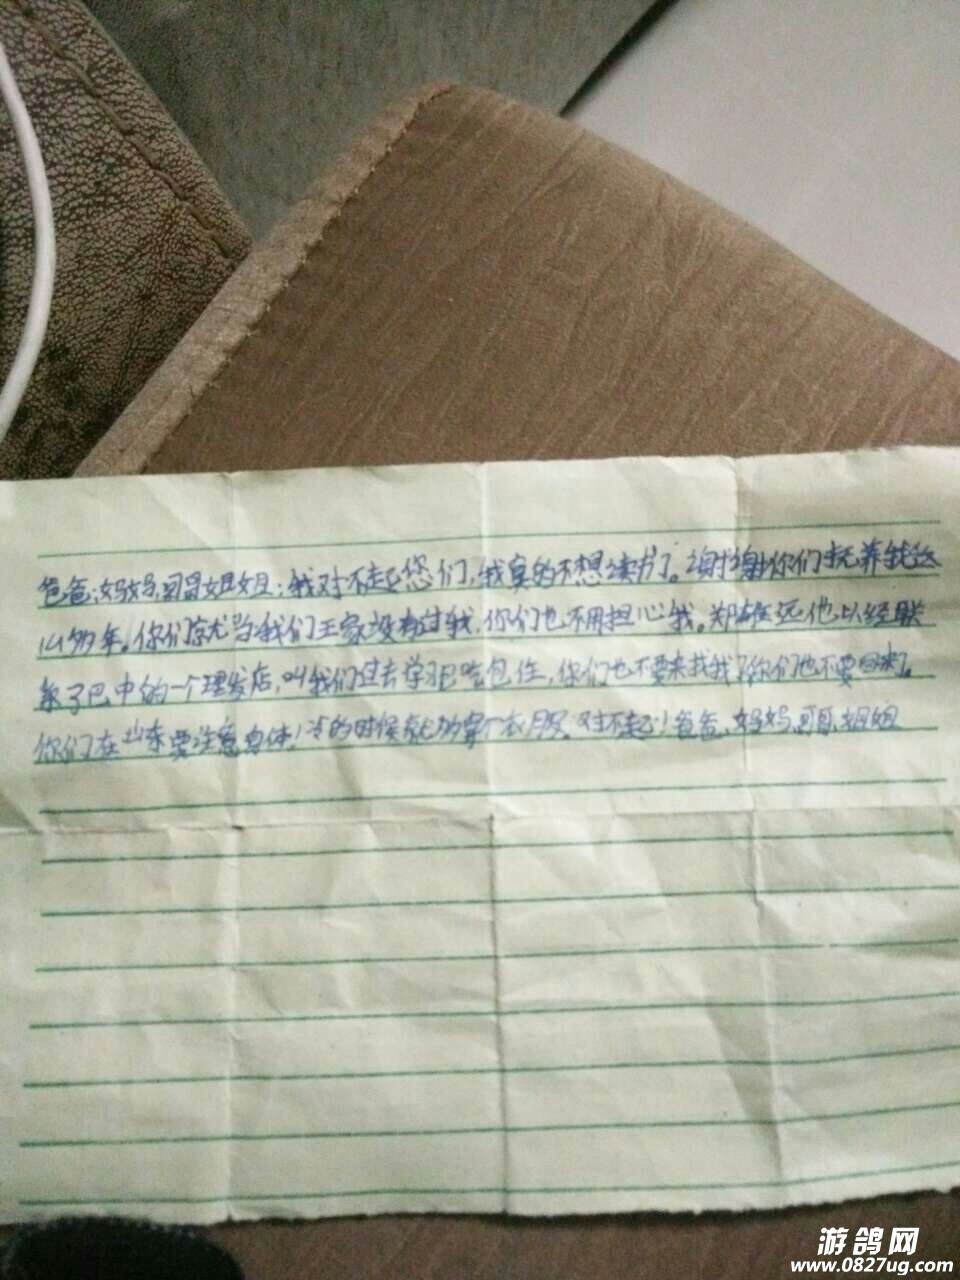 爸爸,妈妈,哥哥姐姐:我对不起您们,我真的不想读书了。谢谢你们抚养我这
14多年。你们就当我们王家没有过我,你们也不用担心我。郑雄远他以经联
系了巴中的一个理发店,叫我们过去学习包吃包住,你们也不要来找我了你们也不要回来了。
你们在山东要注意身体!冷的时候就多穿个衣服。对不起!爸爸、妈妈、哥哥、姐姐
游鸽网
www.0827ug.com